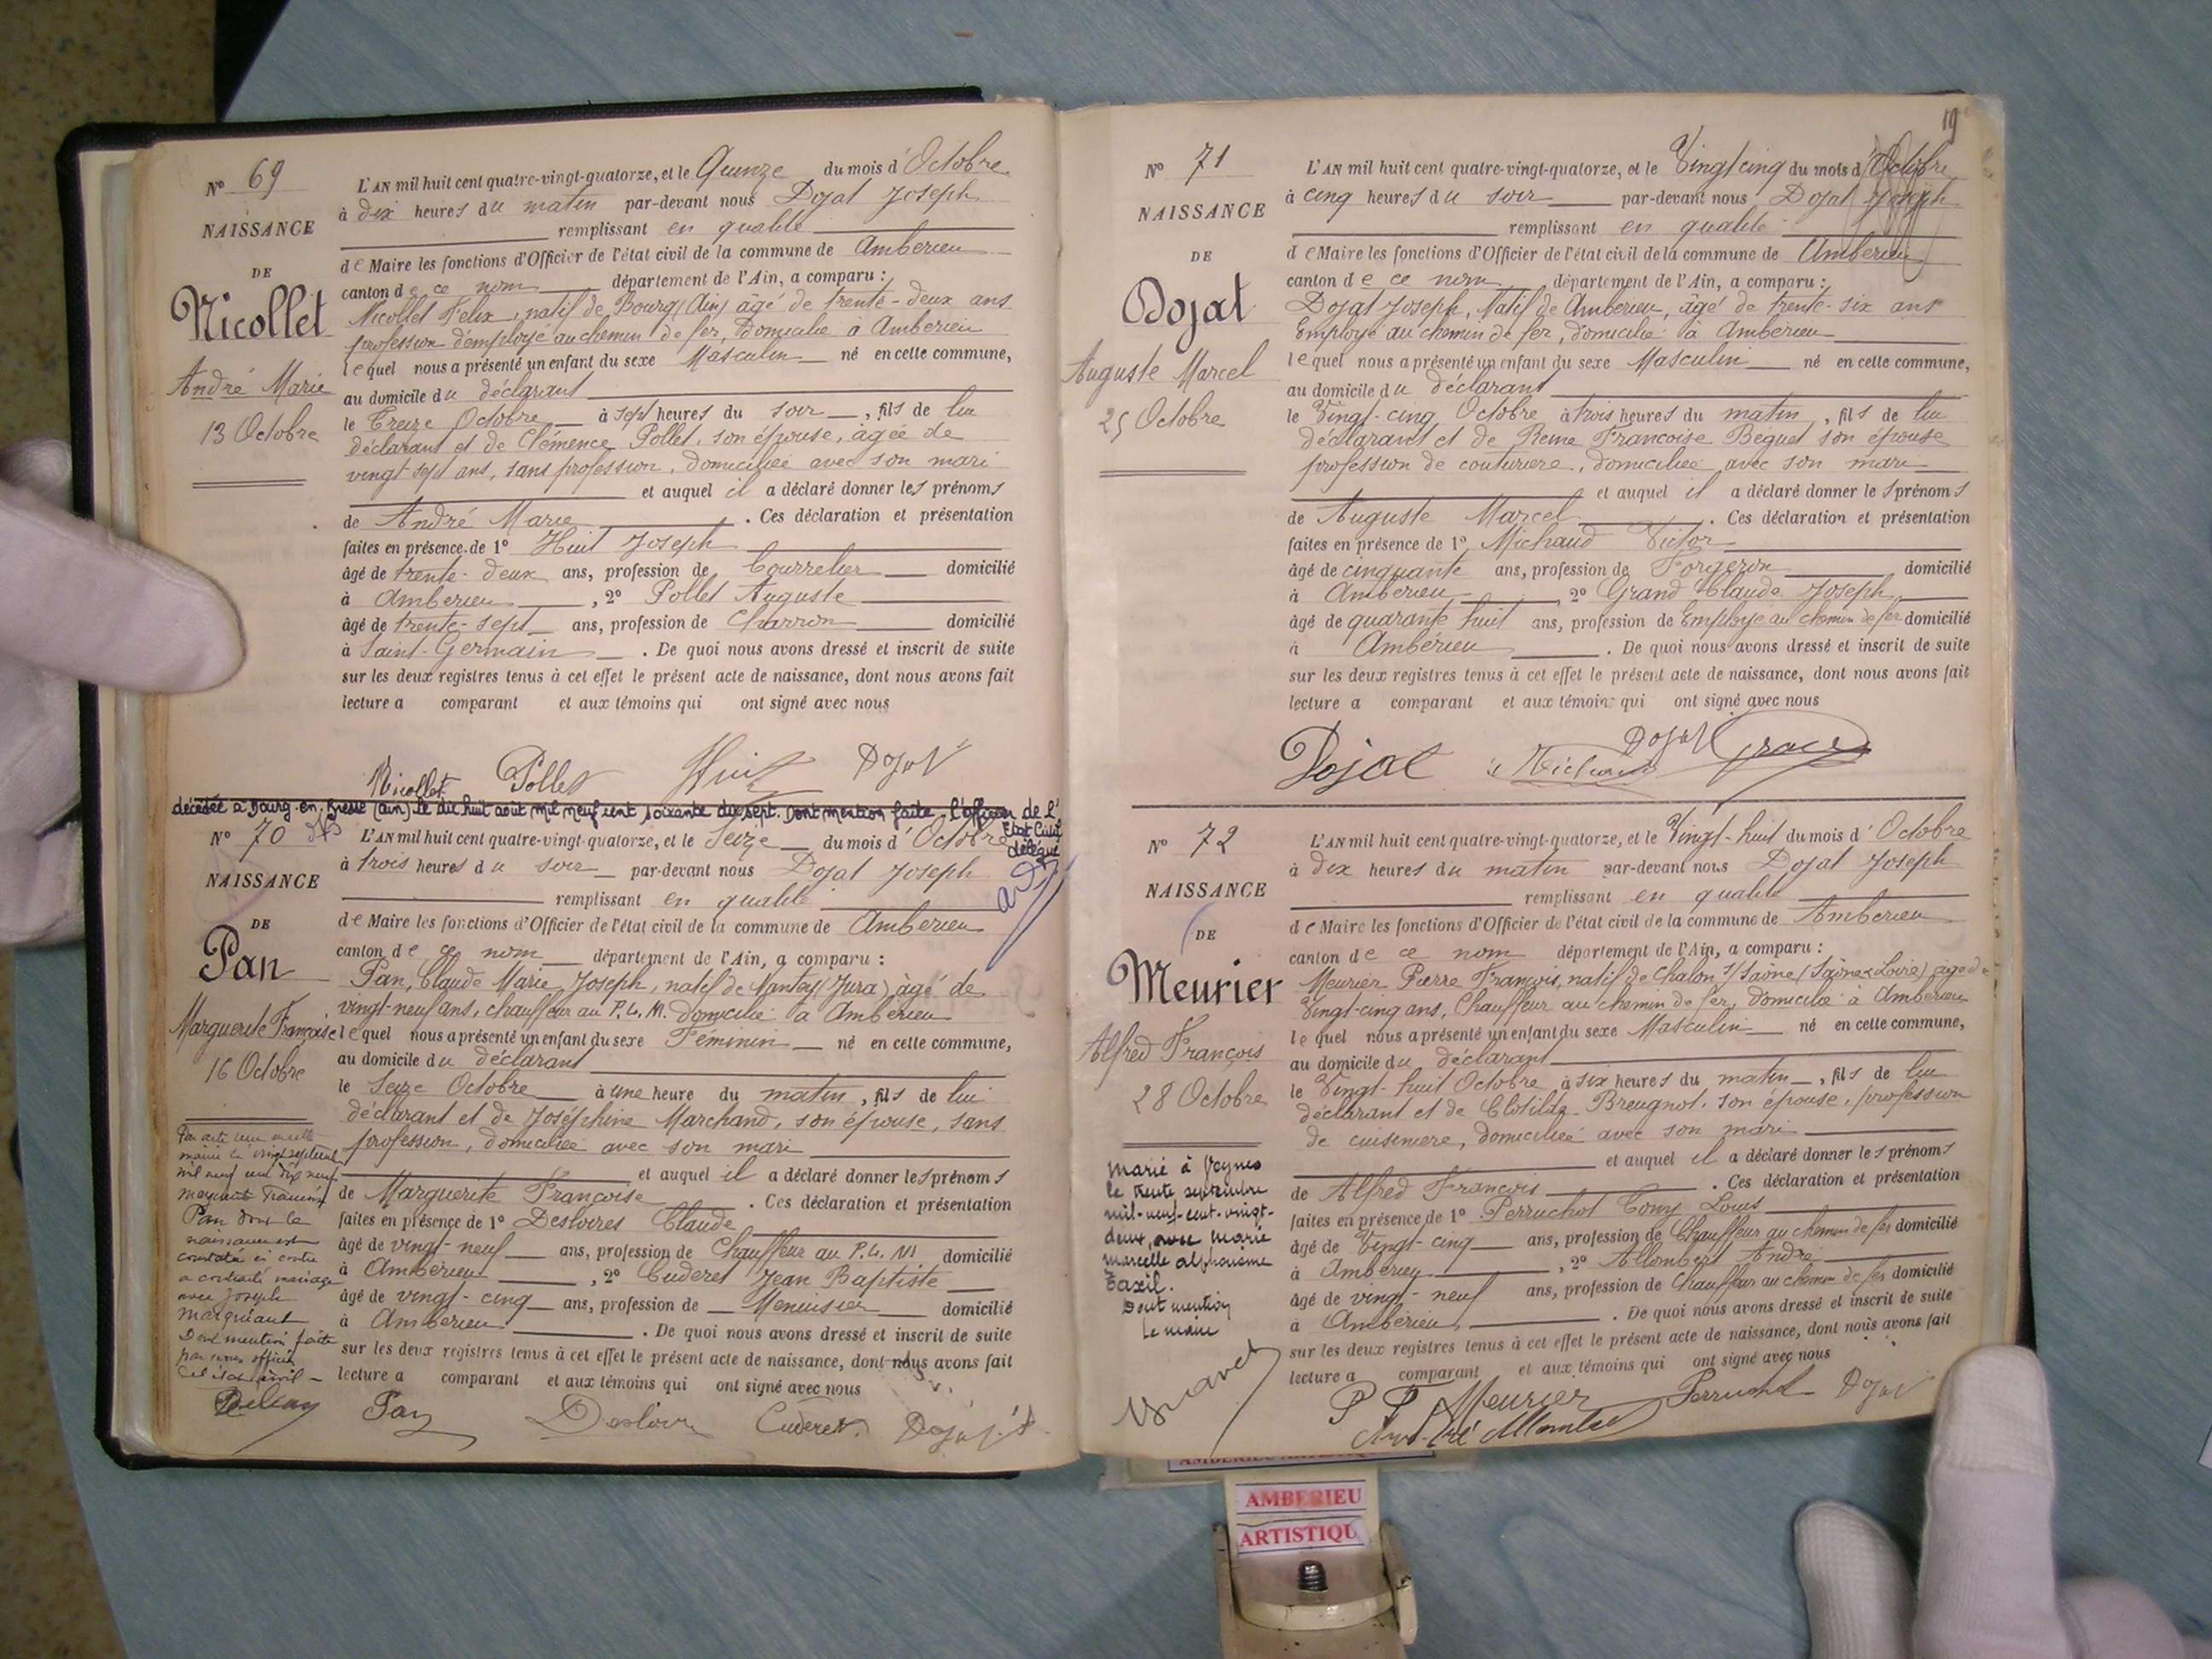 Nº 69
NAISSANCE
DE
Nicollet
André Marie
13 Octobre
L'AN mil huit cent quatre-vingt-quatorze, et le Quinze du mois d'Octobre
à dix heures du matin par-devant nous Dojat Joseph
remplissant en qualité
de Maire les fonctions d'Officier de l'état civil de la commune de Ambérieu
canton de ce nom département de l'Ain, a comparu :
Nicollet Félix, natif de Bourg (Ain) âgé de trente-deux ans
profession d'employé au chemin de fer, domicilié à Ambérieu
lequel nous a présenté un enfant du sexe Masculin né en cette commune,
au domicile du déclarant
le Treize Octobre à sept heures du soir, fils de lui
déclarant et de Clémence Pollet, son épouse, âgée de
vingt sept ans, sans profession, domiciliée avec son mari
et auquel il a déclaré donner les prénoms
de André Marie. Ces déclaration et présentation
faites en présence de 1º Huit Joseph
âgé de trente-deux ans, profession de Bourrelier domicilié
à Ambérieu, 2º Pollet Auguste
âgé de trente-sept ans, profession de Charron domicilié
à Saint-Germain. De quoi nous avons dressé et inscrit de suite
sur les deux registres tenus à cet effet le présent acte de naissance, dont nous avons fait
lecture a comparant et aux témoins qui ont signé avec nous
Nicollet Pollet Huit Dojat
décédée à Bourg-en-Bresse (Ain) le dix huit août mil neuf cent soixante dix sept. Dont mention faite. L'officier de l'
Etat Civil
délégué
Nº 70
NAISSANCE
DE
Pan
Marguerite Françoise
16 Octobre
L'AN mil huit cent quatre-vingt-quatorze, et le Seize du mois d'Octobre
à trois heures du soir par-devant nous Dojat Joseph
remplissant en qualité
de Maire les fonctions d'Officier de l'état civil de la commune de Ambérieu
canton de ce nom département de l'Ain, a comparu :
Pan, Claude Marie Joseph, natif de Nantey (Jura) âgé de
vingt-neuf ans, chauffeur au P.L.M. domicilié à Ambérieu
lequel nous a présenté un enfant du sexe Féminin né en cette commune,
au domicile du déclarant
le Seize Octobre à une heure du matin, fils de lui
déclarant et de Joséphine Marchand, son épouse, sans
profession, domiciliée avec son mari
et auquel il a déclaré donner les prénoms
de Marguerite Françoise. Ces déclaration et présentation
faites en présence de 1º Desloires Claude
âgé de vingt-neuf ans, profession de Chauffeur au P.L.M domicilié
à Ambérieu, 2º Cuderet Jean Baptiste
âgé de vingt-cinq ans, profession de Menuisier domicilié
à Ambérieu. De quoi nous avons dressé et inscrit de suite
sur les deux registres tenus à cet effet le présent acte de naissance, dont nous avons fait
lecture a comparant et aux témoins qui ont signé avec nous
mil neuf cent dix neuf
Pan dont la
naissance est
constatée ci contre
a contracté mariage
avec Joseph
Marguant
Dont mention faite
par nous officier
de l'état civil
Pan Cuderet Dojat J.
19
Nº 71
NAISSANCE
DE
Dojat
Auguste Marcel
25 Octobre
L'AN mil huit cent quatre-vingt-quatorze, et le Vingt cinq du mois d'Octobre
à cinq heures du soir par-devant nous Dojat Joseph
remplissant en qualité
de Maire les fonctions d'Officier de l'état civil de la commune de Ambérieu
canton de ce nom département de l'Ain, a comparu :
Dojat Joseph, natif de Ambérieu, âgé de trente-six ans
Employé au chemin de fer, domicilié à Ambérieu
lequel nous a présenté un enfant du sexe Masculin né en cette commune,
au domicile du déclarant
le Vingt-cinq Octobre à trois heures du matin, fils de lui
déclarant et de Reine Françoise Béguet son épouse
profession de couturière, domiciliée avec son mari
et auquel il a déclaré donner les prénoms
de Auguste Marcel. Ces déclaration et présentation
faites en présence de 1º Michaud Victor
âgé de cinquante ans, profession de Forgeron domicilié
à Ambérieu, 2º Grand Claude Joseph
âgé de quarante huit ans, profession de Employé au chemin de fer domicilié
à Ambérieu. De quoi nous avons dressé et inscrit de suite
sur les deux registres tenus à cet effet le présent acte de naissance, dont nous avons fait
lecture a comparant et aux témoins qui ont signé avec nous
Dojat Dojat Grand
Nº 72
NAISSANCE
DE
Meurier
Alfred François
28 Octobre
L'AN mil huit cent quatre-vingt-quatorze, et le Vingt-huit du mois d'Octobre
à dix heures du matin par-devant nous Dojat Joseph
remplissant en qualité
de Maire les fonctions d'Officier de l'état civil de la commune de Ambérieu
canton de ce nom département de l'Ain, a comparu :
Meurier Pierre François, natif de Chalon s/ Saône (Saône & Loire) âgé de
Vingt-cinq ans, Chauffeur au chemin de fer, domicilié à Ambérieu
lequel nous a présenté un enfant du sexe Masculin né en cette commune,
au domicile du déclarant
le Vingt-huit Octobre à six heures du matin, fils de lui
déclarant et de Clotilde Breugnot, son épouse, profession
de cuisinière, domiciliée avec son mari
et auquel il a déclaré donner les prénoms
de Alfred François. Ces déclaration et présentation
faites en présence de 1º Perruchot Tony Louis
âgé de Vingt-cinq ans, profession de Chauffeur au chemin de fer domicilié
à Ambérieu, 2º Allombert André
âgé de vingt-neuf ans, profession de Chauffeur au chemin de fer domicilié
à Ambérieu. De quoi nous avons dressé et inscrit de suite
sur les deux registres tenus à cet effet le présent acte de naissance, dont nous avons fait
lecture a comparant et aux témoins qui ont signé avec nous
Marié à Veynes
le trente septembre
mil-neuf-cent-vingt-
deux, avec Marie
Marcelle Alphonsine
Taxil.
Dont mention
Le maire
P F Meurier Perruchot Dojat
AMBERIEU
ARTISTIQU